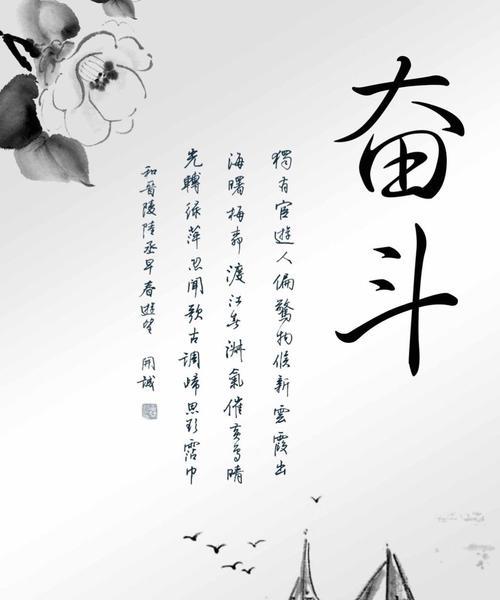 奋斗
獨有宦遊人偏驚物候新雲霞出
海曙梅柳渡江春淑氣催黃鳥晴
光轉綠萍忽聞歌古調歸思欲霑巾
和晉陵陸丞早春遊望 開誠